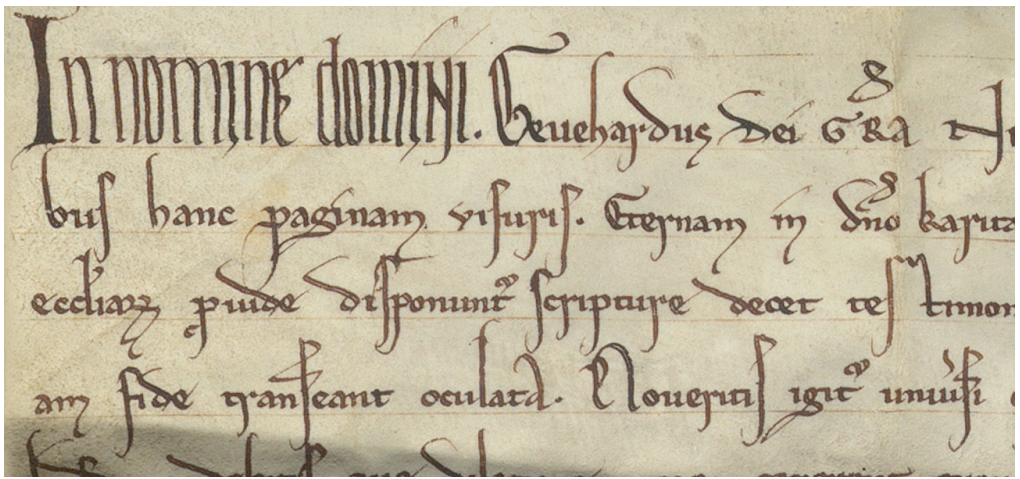 In nomine domini. Geuehardus dei GRA
bus hanc paginam visuris. Eternam in dno
eccliarꝝ ꝓuide disponuntᷣ scripture decet testimon
am fide transeant oculata. Noueritis igitᷣ